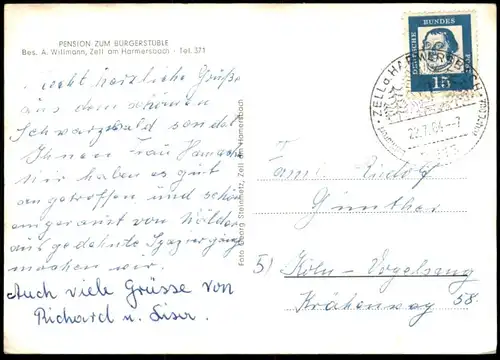 PENSION ZUM BURGERSTÜBLE
Bes. A. Willmann, Zell am Harmersbach - Tel. 371
recht herzliche Grüße
aus dem schönen
Schwarzwald sendet
Ihnen Frau
Wir haben es gut
angetroffen und schön
von Wälder
ausgedehnte Spaziergänge
machen wir.
Auch viele Grüsse von
Richard u. Liser.
Foto Georg Steinmetz, Zell am Harmersbach
DEUTSCHE BUNDES
15
ZELL a. HARMERSBACH
22.7.64-7
Fam.
Günther
5) Köln-Vogelsang
Krähenweg 58.